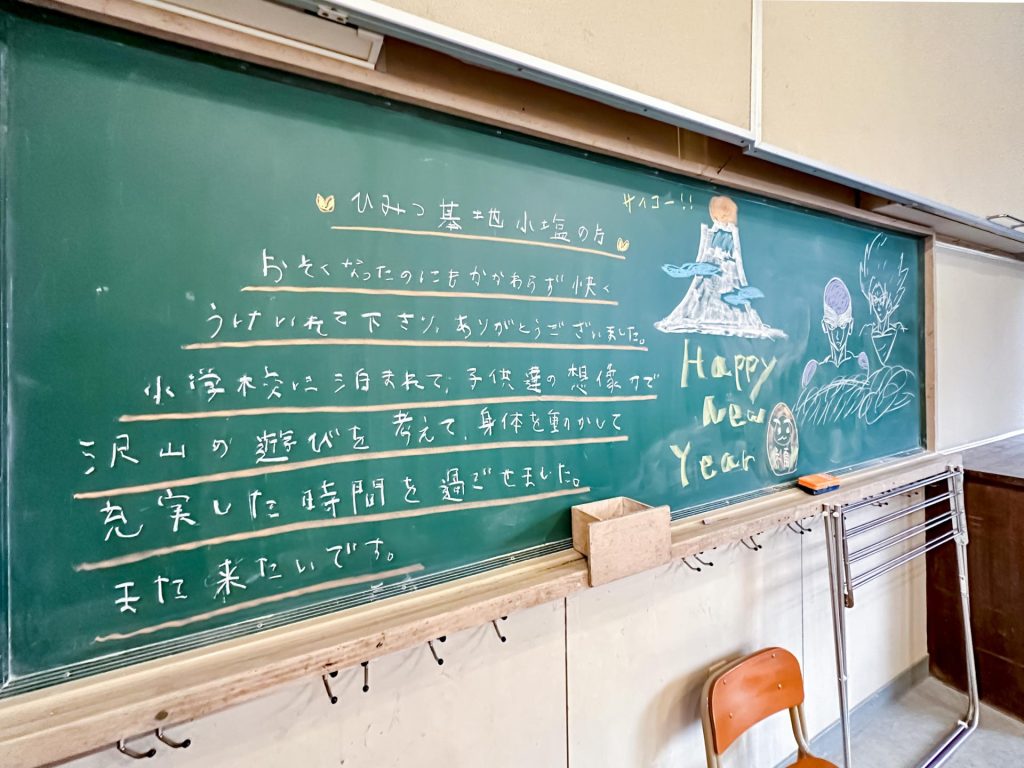 ひみつ基地小塩の方
おそくなったのにもかかわらず快く
うけいれて下さり、ありがとうございました。
小学校に泊まれて、子供達の想像力で
沢山の遊びを考えて、身体を動かして
充実した時間を過ごせました。
また来たいです。
サイコー!!
Happy
New
Year